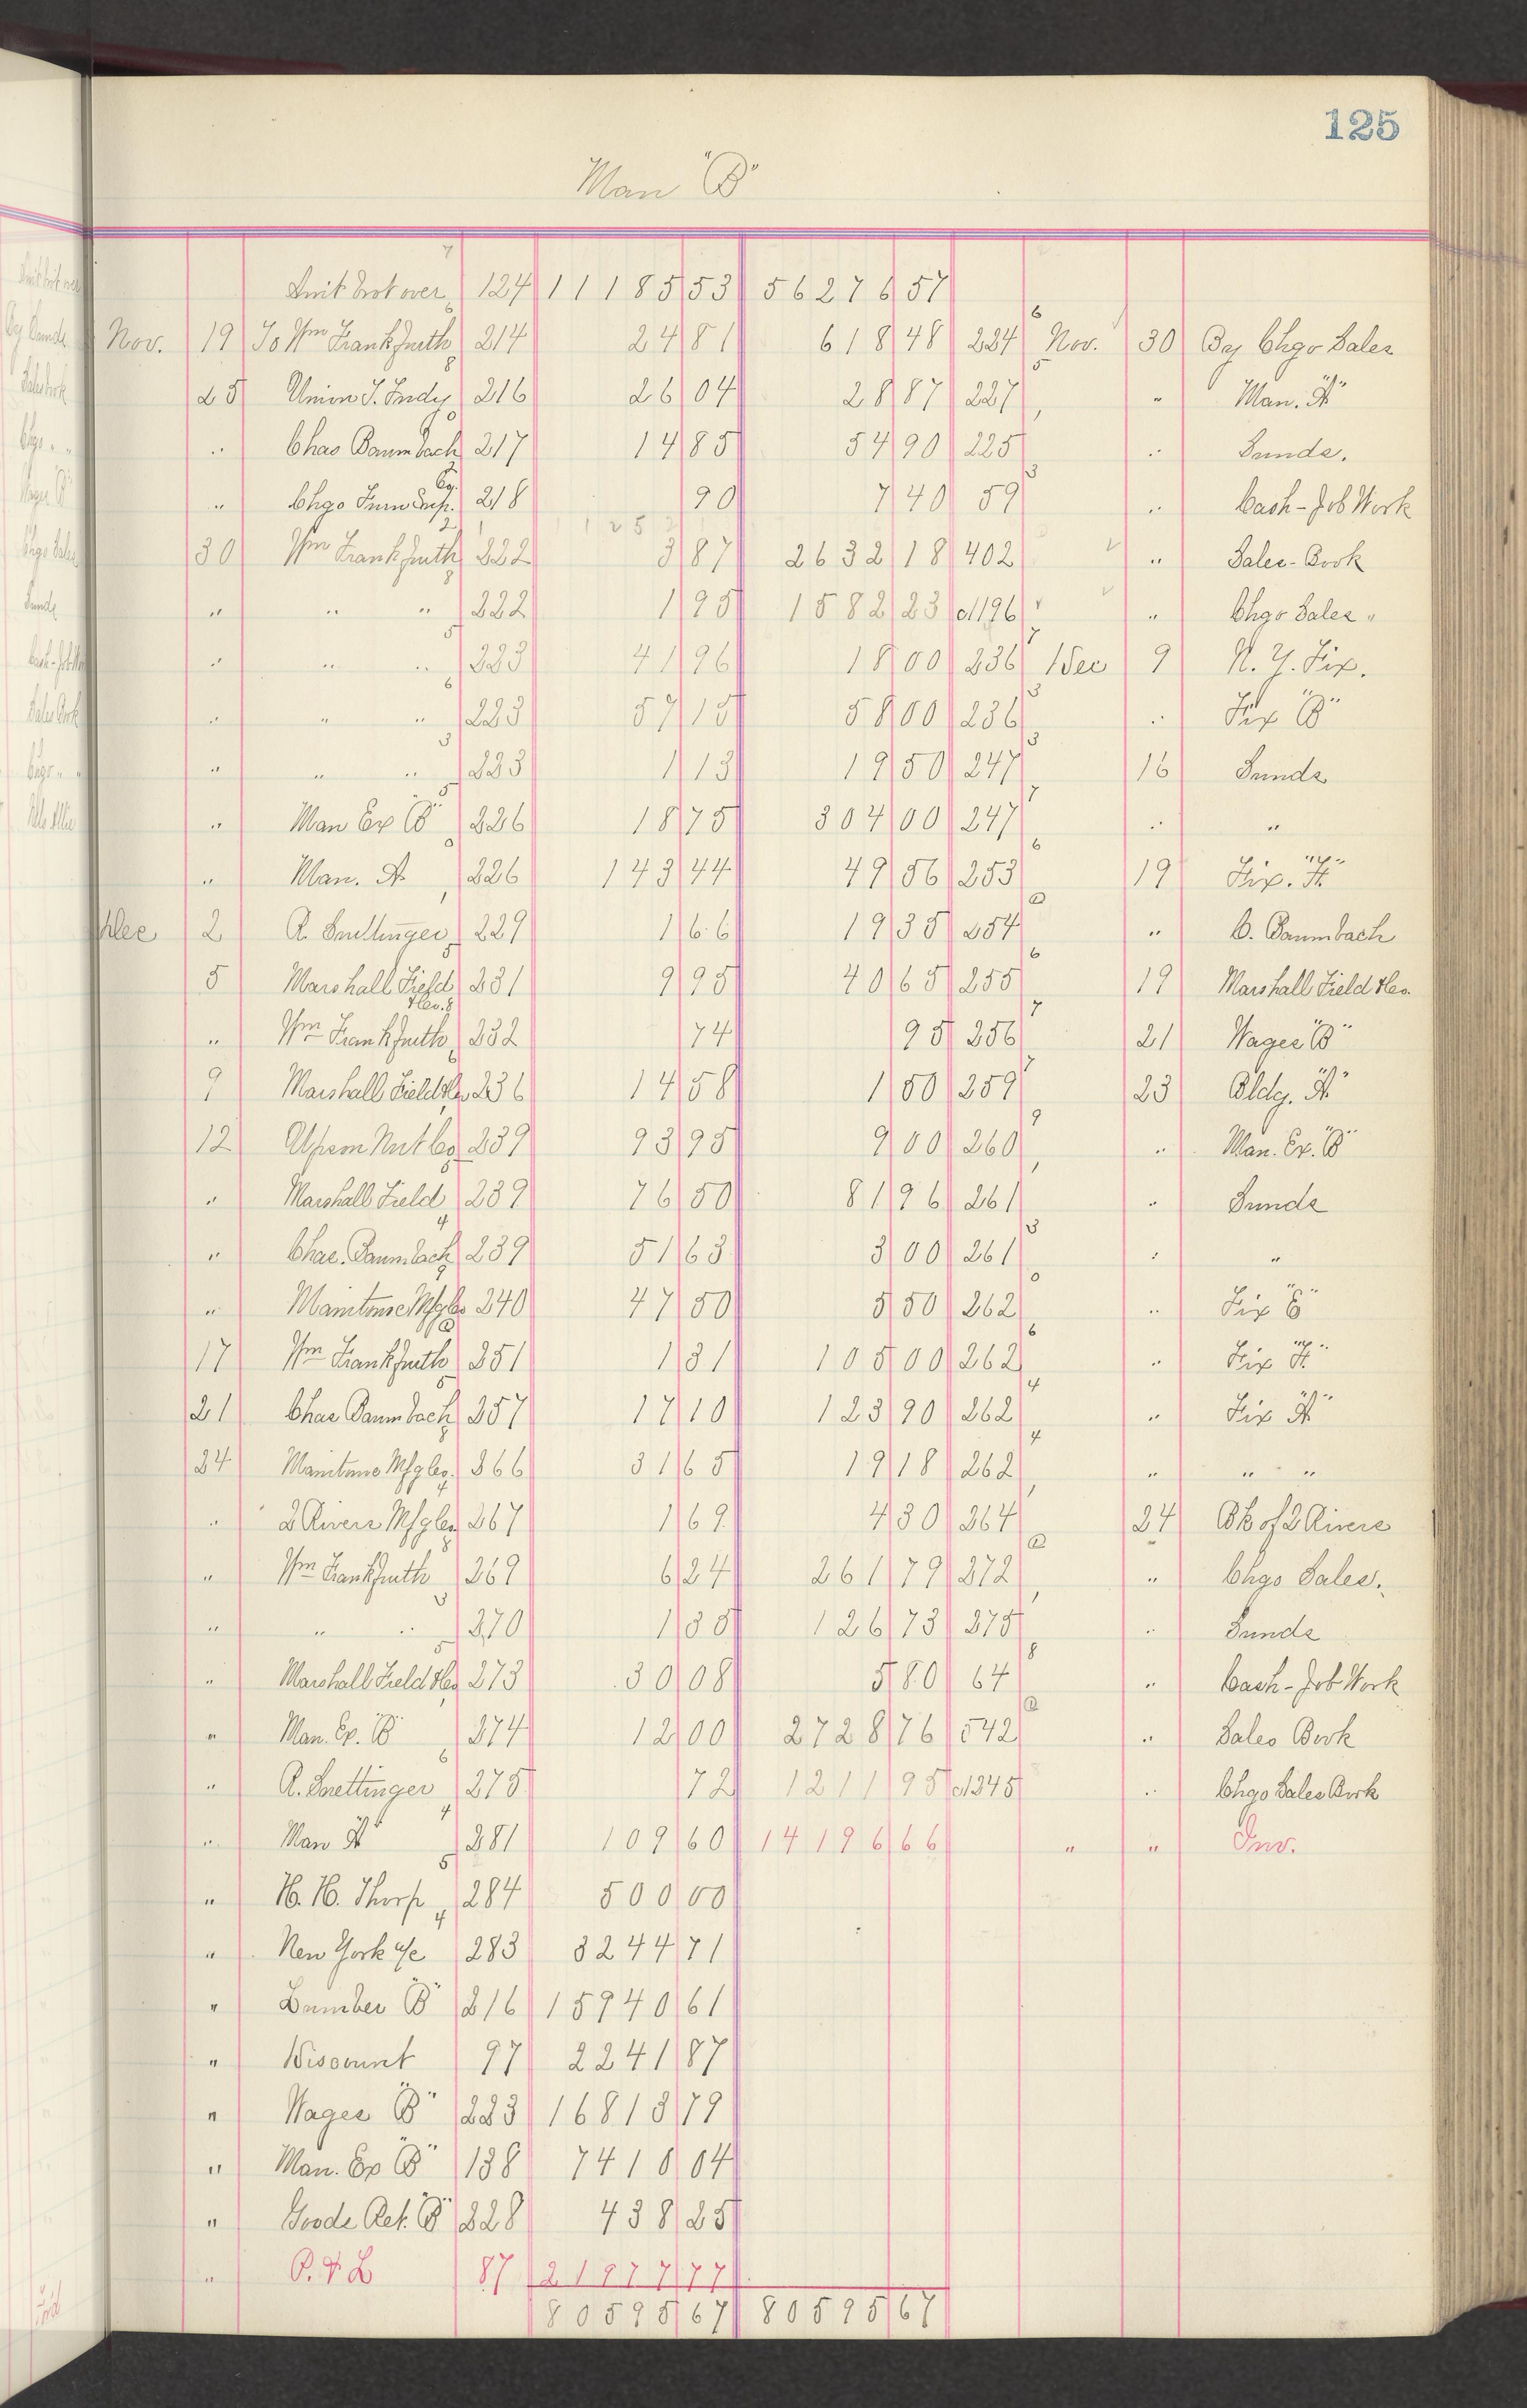 125
Man "B"
Amt brot over 124 11185 53 56276 57
Nov. 19 To Wm Frankfurth 214 24 81 618 48 224 Nov. 30 By Chgo Sales
25 Union S. Indy 216 26 04 28 87 227 " Man. "A"
" Chas Baumbach 217 14 85 54 90 225 " Sunds.
" Chgo Co. 218 90 7 40 59 " Cash-Job Work
30 Wm Frankfurth 222 3 87 2632 18 402 " Sales-Book
" " " 222 1 95 1582 23 c1196 " Chgo Sales "
" " " 223 41 96 18 00 236 Dec 9 N. Y. Fix.
" " " 223 57 15 58 00 236 " Fix "B"
" " " 223 1 13 19 50 247 16 Sunds
" Man Ex "B" 226 18 75 304 00 247 " "
" Man. A 226 143 44 49 56 253 19 Fix. "H"
Dec 2 R. Suettinger 229 1 66 19 35 254 " C. Baumbach
5 Marshall Field &Co. 231 9 95 40 65 255 19 Marshall Field &Co.
" Wm Frankfurth 232 74 95 256 21 Wages "B"
9 Marshall Field &Co 236 14 58 1 50 259 23 Bldg. "A"
12 Upson Nut Co 239 93 95 9 00 260 " Man. Ex. "B"
" Marshall Field 239 76 50 81 96 261 " Sunds
" Chas. Baumbach 239 51 63 3 00 261 " "
" Manitowoc Mfg Co 240 47 50 5 50 262 " Fix "E"
17 Wm Frankfurth 251 1 31 105 00 262 " Fix "H"
21 Chas Baumbach 257 17 10 123 90 262 " Fix "A"
24 Manitowoc Mfg Co. 266 31 65 19 18 262 " " "
" 2 Rivers Mfg Co. 267 1 69 4 30 264 24 Bk of 2 Rivers
" Wm Frankfurth 269 6 24 261 79 272 " Chgo Sales.
" " " 270 1 35 126 73 275 " Sunds
" Marshall Field &Co 273 30 08 5 80 64 " Cash-Job Work
" Man. Ex. "B" 274 12 00 2728 76 542 " Sales Book
" R. Suettinger 275 72 1211 95 c1345 " Chgo Sales Book
" Man "A" 281 109 60 14196 66 " " Inv.
" H. H. Thorp 284 500 00
" New York a/c 283 3244 71
" Lumber "B" 216 15940 61
" Discount 97 2241 87
" Wages "B" 223 16813 79
" Man. Ex "B" 138 7415 04
" Goods Ret. "B" 228 438 25
" P. & L 87 21977 77
80595 67 80595 67